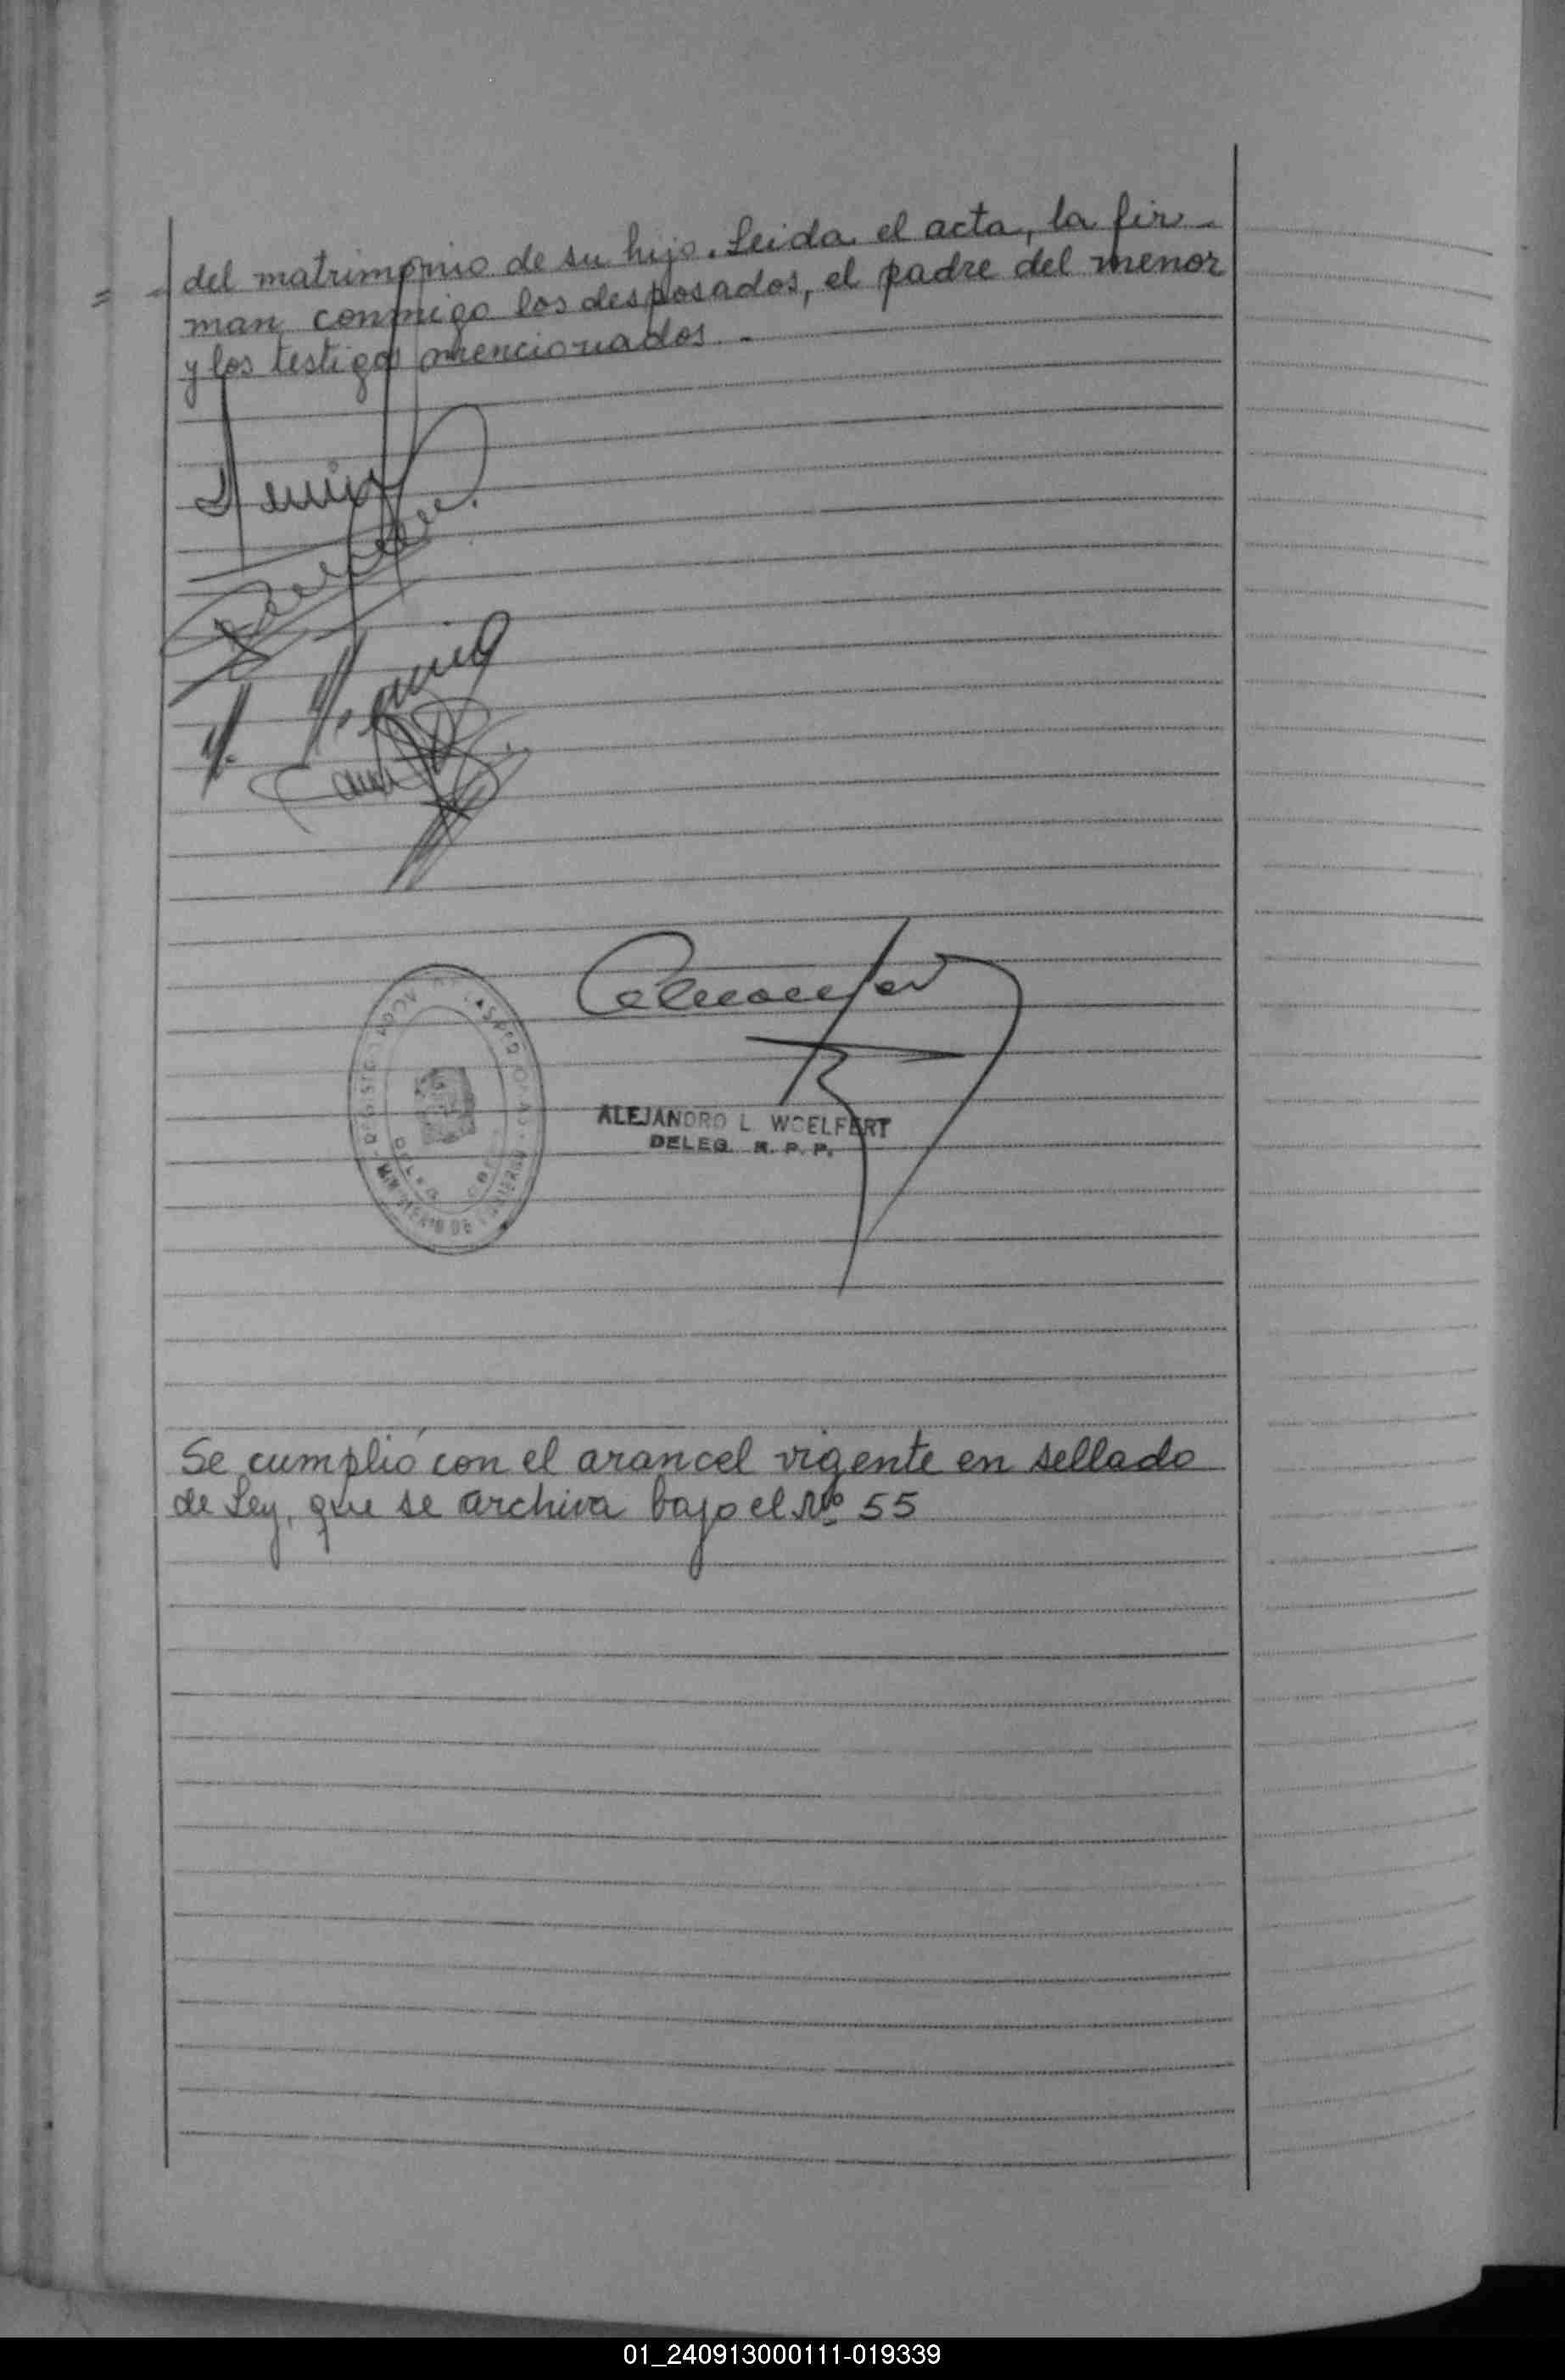 del matrimonio de su hijo. Leida el acta, la fir-
man conmigo los desposados, el padre del menor
y los testigos mencionados. -
ALEJANDRO L WOELFERT
DELEG. R. P. P.
MINISTERIO DE
DELEG
Se cumplió con el arancel vigente en sellado
de Ley, que se archiva bajo el Nº 55
01_240913000111-019339